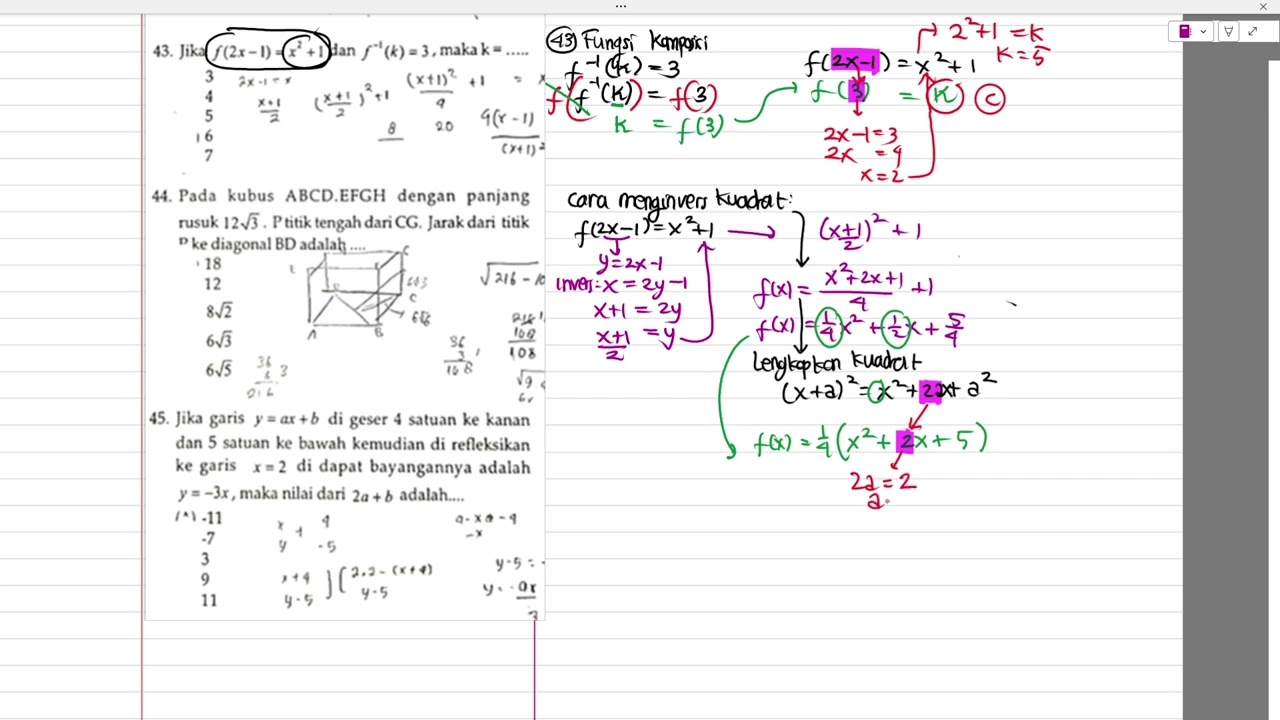 43. Jika f(2x−1) = x² + 1 dan f⁻¹(k) = 3, maka k = .....
3
4
5
6
7
2x-1 = x
x+1/2
(x+1/2)² + 1
(x+1)²/4 + 1 = x
8
20
(x+1)²
44. Pada kubus ABCD.EFGH dengan panjang
rusuk 12√3 . P titik tengah dari CG. Jarak dari titik
P ke diagonal BD adalah ....
18
12
8√2
6√3
6√5
A
B
C
√216 - 10
36
3
108
108
45. Jika garis y = ax + b di geser 4 satuan ke kanan
dan 5 satuan ke bawah kemudian di refleksikan
ke garis x = 2 di dapat bayangannya adalah
y = −3x, maka nilai dari 2a + b adalah....
-11
-7
3
9
11
x + 4
y -5
x+4
y-5
2.2 - (x+4)
y-5
y-5 =
43) Fungsi Komposisi
f⁻¹(k) = 3
f(f⁻¹(k)) = f(3)
k = f(3)
f(2x-1) = x²+1
f(3) = k C
2x-1=3
2x = 4
x=2
2²+1 = k
k=5
cara menginvers kuadrat:
f(2x-1)=x²+1
y=2x-1
invers: x = 2y-1
x+1 = 2y
x+1/2 = y
(x+1/2)² + 1
f(x) = x²+2x+1/4 + 1
f(x) = 1/4x² + 1/2x + 5/4
Lengkapkan kuadrat
(x+a)² = x² + 2ax + a²
f(x) = 1/4(x² + 2x + 5)
2a = 2
a